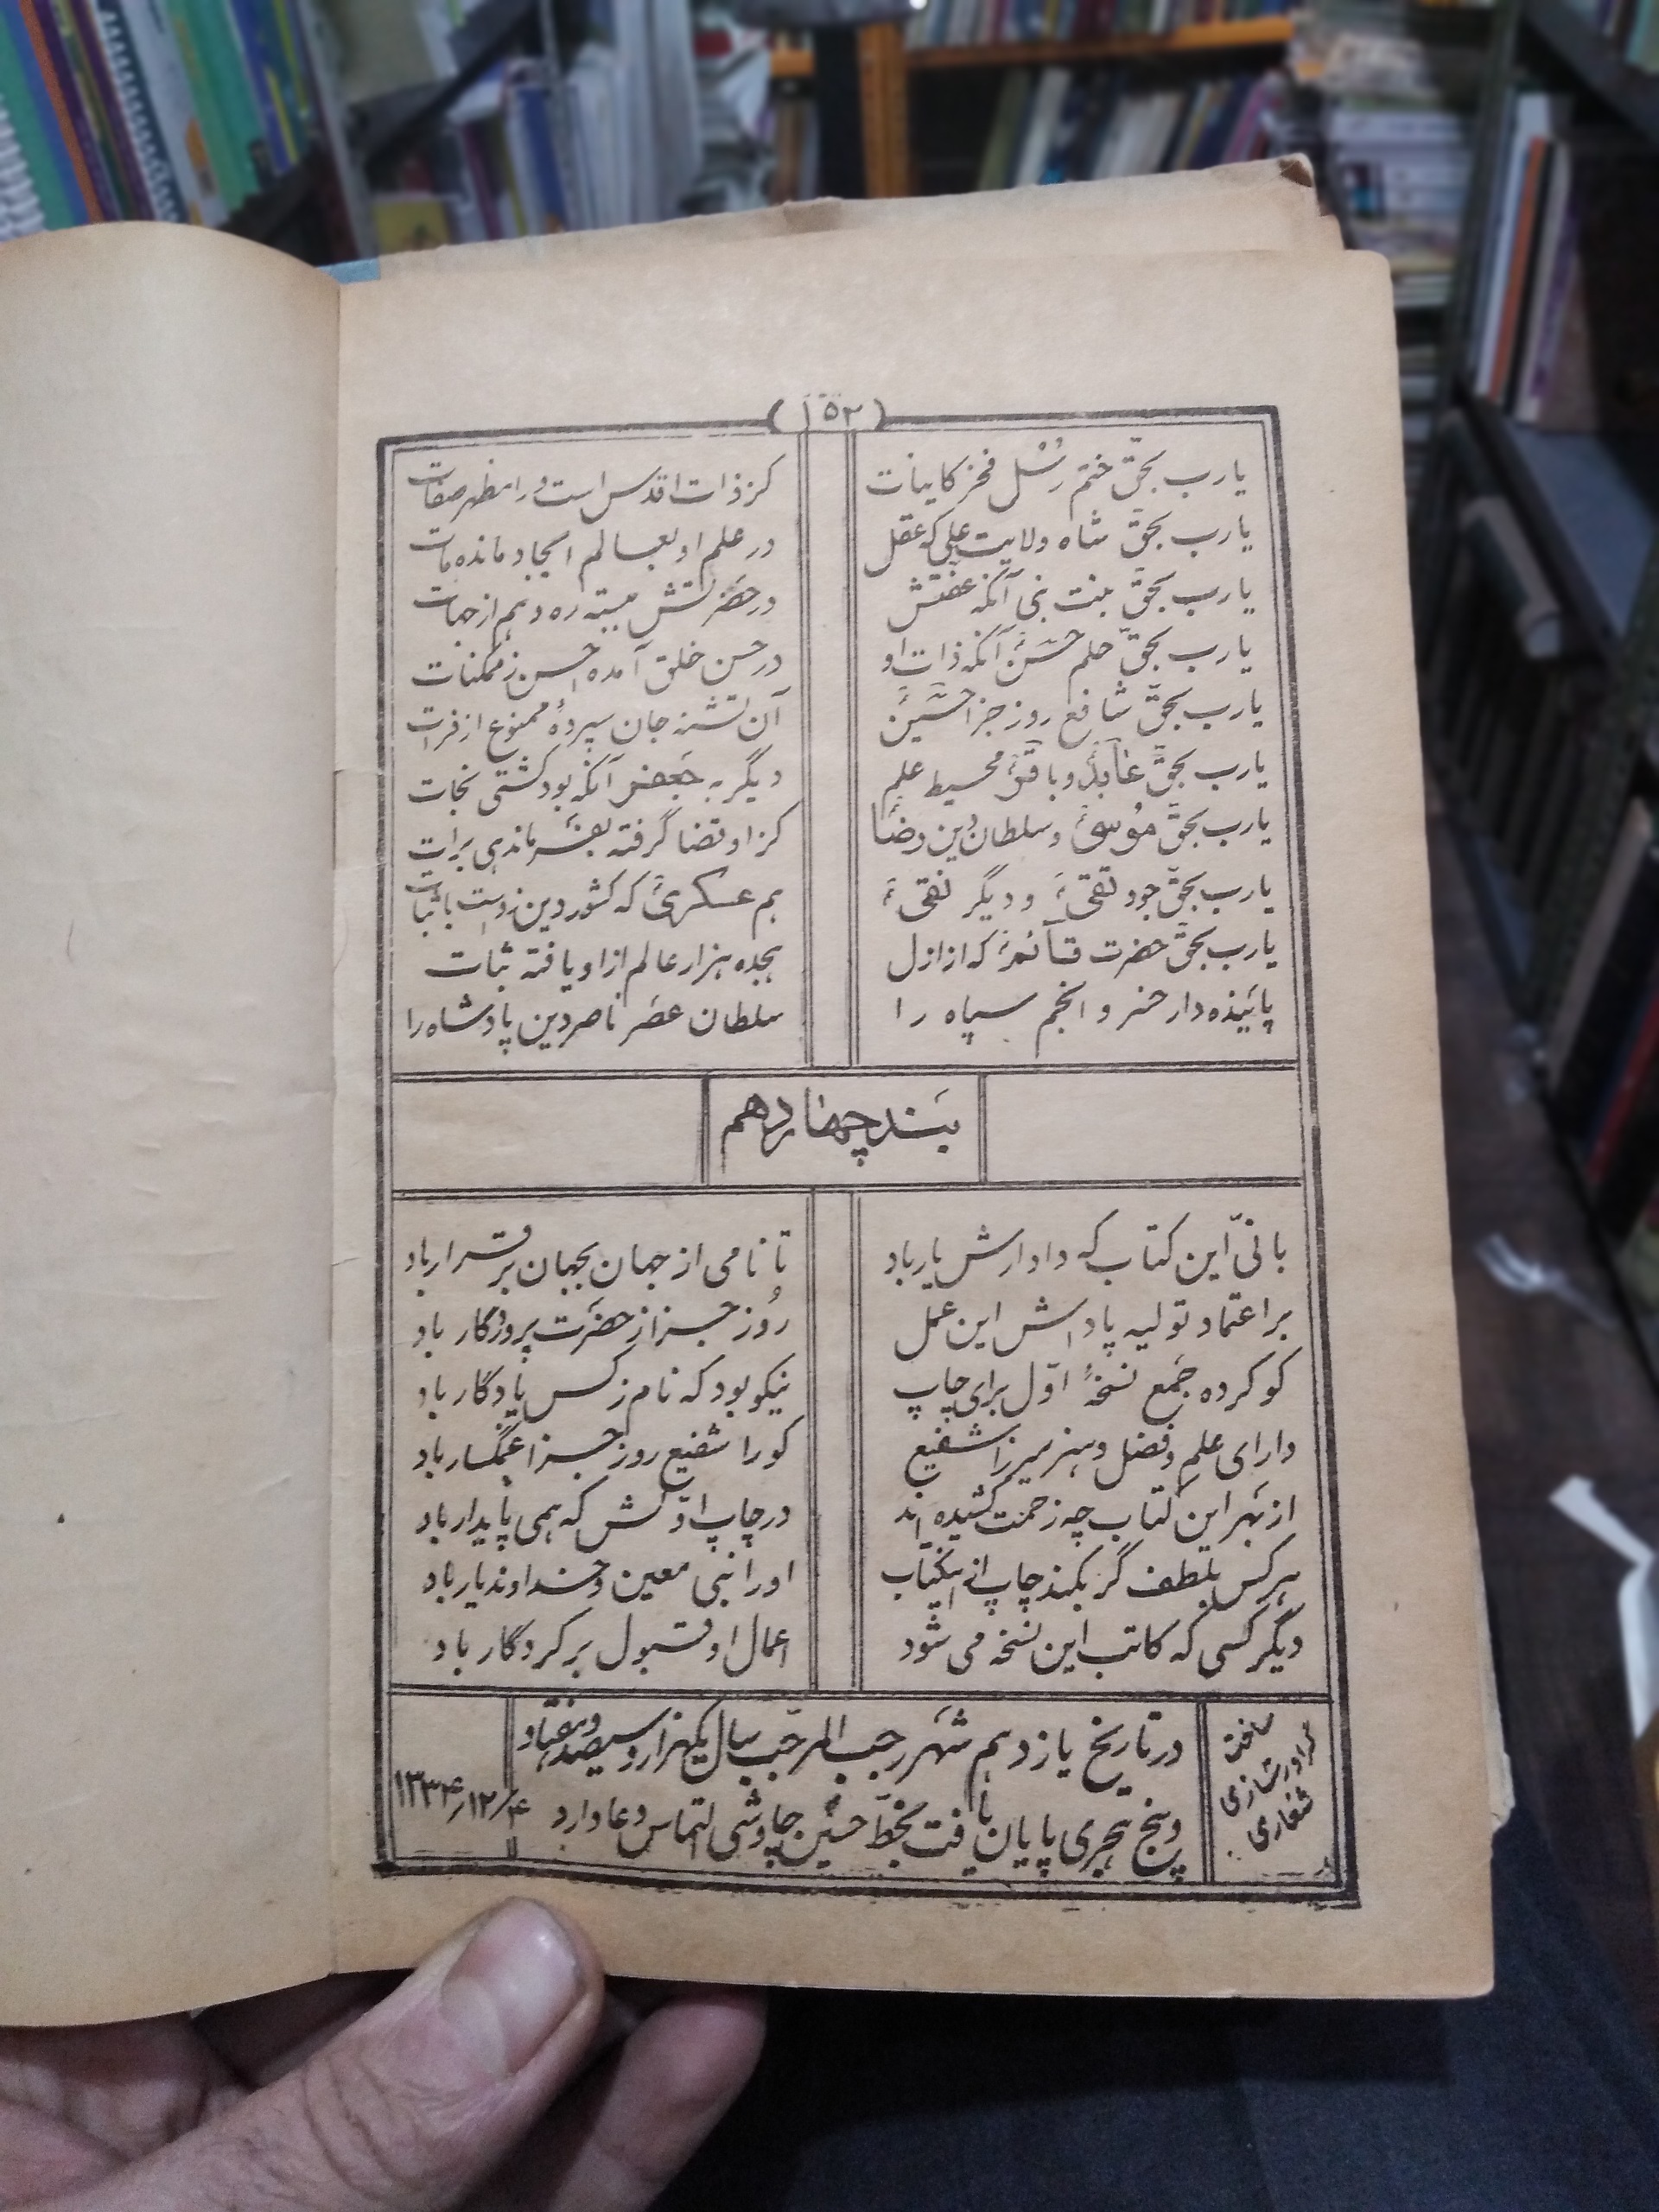 (۱۵۲)
یارب بحقّ ختم رسُل فخر کاینات کز ذات اقدس است ورا مظهر صفات
یارب بحقّ شاه ولایت علی که عقل در علم او بعالم ایجاد مانده مات
یارب بحقّ بنت نبی آنکه عفتش در حضرتش ببسته ره وهم از جهات
یارب بحقّ حلم حسنؑ آنکه ذات او در حسن خلق آمده احسن ز ممکنات
یارب بحقّ شافع روز جزا حسینؑ آن تشنه جان سپردهٔ ممنوع از فرات
یارب بحقّ عابدؑ و باقرؑ محیط علم دیگر به جعفر آنکه بود کشتی نجات
یارب بحقّ موُسیؑ و سلطان دین رضاؑ کز او قضا گرفته بفرماندهی برات
یارب بحقّ جود تقیؑ و دیگر نقیؑ هم عسکریؑ که کشور دین زوست با ثبات
یارب بحقّ حضرت قائمؑ که از ازل هجده هزار عالم از او یافته ثبات
پاینده دار خسرو انجم سپاه را سلطان عصر ناصردین پادشاه را
بند چهاردهم
بانیّ این کتاب که دادارش یار باد تا نامی از جهان بجهان برقرار باد
بر اعتماد تولیه پاداش این عمل روُز جزا ز حضرت پروردگار باد
کو کرده جمع نسخهٔ اوّل برای چاپ نیکو بود که نام ز کس یادگار باد
دارای علم و فضل و هنر میرزا شفیع کورا شفیع روز جزا غمگسار باد
از بهر این کتاب چه زحمت کشیده اند در چاپ اوّلش که همی پایدار باد
هرکس بلطف گر بکند چاپ اینکتاب او را نبی معین و خداوند یار باد
دیگر کسی که کاتب این نسخه می شود اعمال او قبول بر کردگار باد
در تاریخ یازدهم شهر رجب المرجّب بسال یکهزار و سیصد و هفتاد
و پنج هجری پایان یافت بخطّ حسین چاوشی التماس دعا دارد
۱۳۳۴٫۱۲/۴
ساخت
گراورسازی
غفاری